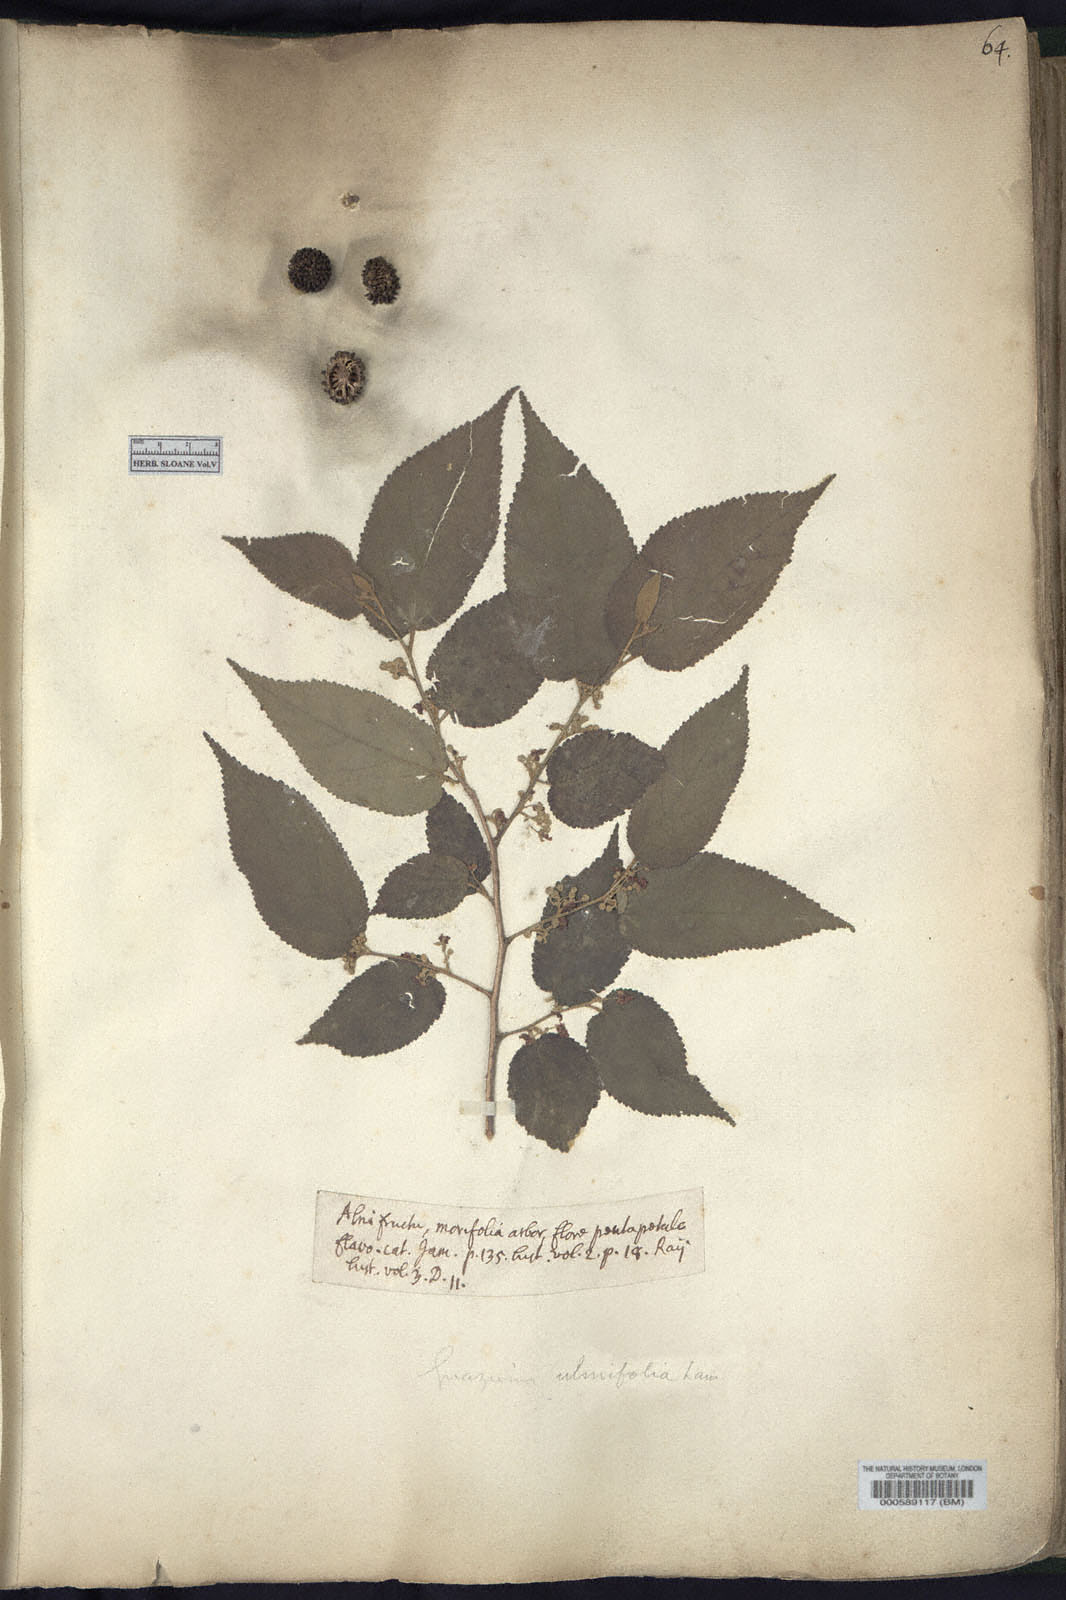 64.
HERB. SLOANE Vol.V
Alni fructu, morifolia arbor, flore pentapetalo
flavo. cat. Jam. p. 135. hist. vol. 2. p. 18. Raij
hist. vol. 3. D. 11.
Guazuma ulmifolia Lam
THE NATURAL HISTORY MUSEUM, LONDON
DEPARTMENT OF BOTANY
000589117 (BM)